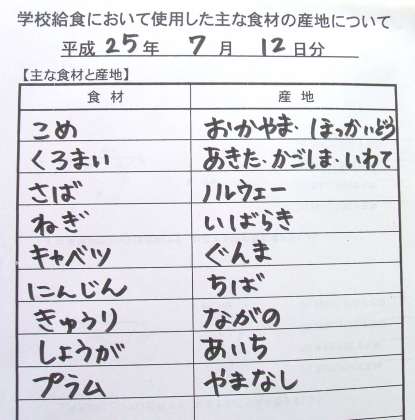 学校給食において使用した主な食材の産地について
平成 25 年 7 月 12 日分
【主な食材と産地】
食材 産地
こめ おかやま・ほっかいどう
くろまい あきた・かごしま・いわて
さば ノルウェー
ねぎ いばらき
キャベツ ぐんま
にんじん ちば
きゅうり ながの
しょうが あいち
プラム やまなし